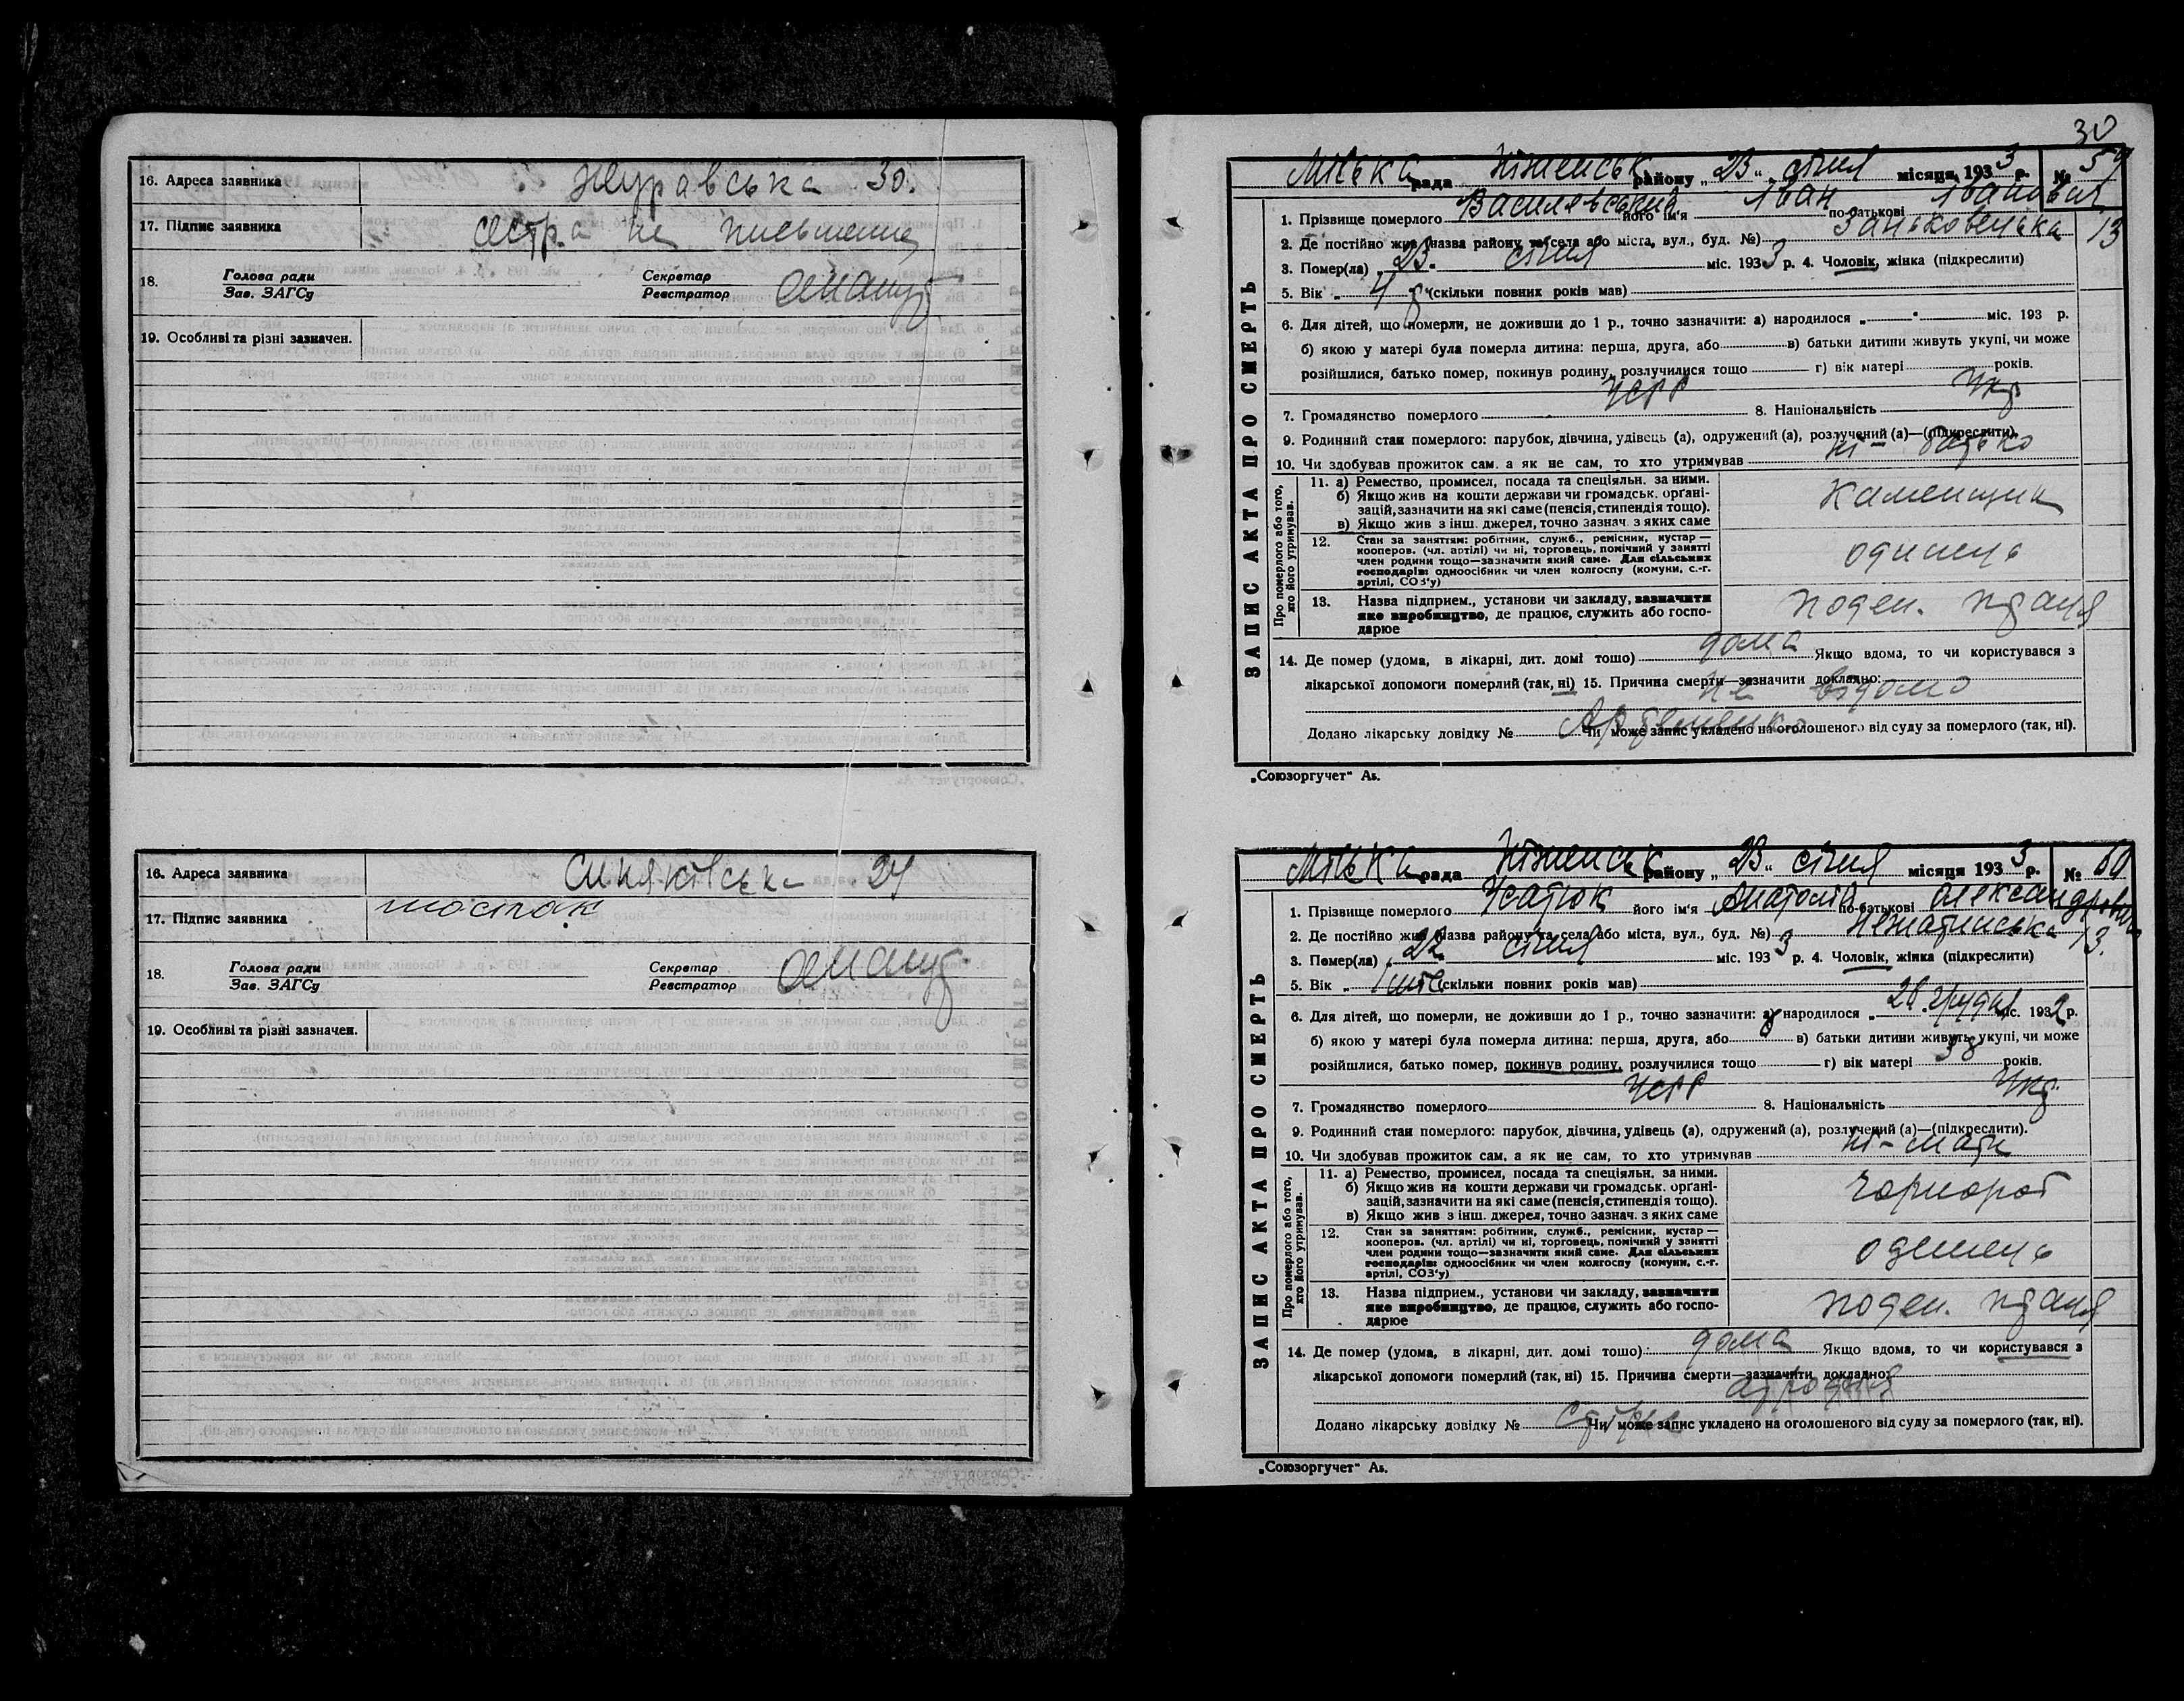 16. Адреса заявника Журавська 30.
17. Підпис заявника сестра не письменна
18. Голова ради Зав. ЗАГСу Секретар Реєстратор
19. Особливі та різні зазначен.
16. Адреса заявника 24
17. Підпис заявника
18. Голова ради Зав. ЗАГСу Секретар Реєстратор
19. Особливі та різні зазначен.
30
Міська рада Ніженськ району „23“ січня місяця 1933 р. № 59
ЗАПИС АКТА ПРО СМЕРТЬ
1. Прізвище померлого Василевський його ім'я Іван по-батькові Іванович
2. Де постійно жив (назва району та села або міста, вул., буд. №) Заньковецька 13
3. Помер(ла) „23“ січня міс. 1933 р. 4. Чоловік, жінка (підкреслити)
5. Вік „ 4 р (скільки повних років мав)
6. Для дітей, що померли, не доживши до 1 р., точно зазначити: а) народилося „ “ міс. 193 р.
б) якою у матері була померла дитина: перша, друга, або в) батьки дитини живуть укупі, чи може
розійшлися, батько помер, покинув родину, розлучилися тощо г) вік матері років.
7. Громадянство померлого УСРР 8. Національність Укр
9. Родинний стан померлого: парубок, дівчина, удівець (а), одружений (а), розлучений (а)—(підкреслити).
10. Чи здобував прожиток сам, а як не сам, то хто утримував ні - батько
Про померлого або того, хто його утримував.
11. а) Ремество, промисел, посада та спеціяльн. за ними.
б) Якщо жив на кошти держави чи громадськ. органі-
зацій, зазначити на які саме (пенсія, стипендія тощо).
в) Якщо жив з інш. джерел, точно зазнач. з яких саме
каменщик
12. Стан за заняттям: робітник, служб., ремісник, кустар —
кооперов. (чл. артілі) чи ні, торговець, помічний у занятті
член родини тощо—зазначити який саме. Для сільських
господарів: одноосібник чи член колгоспу (комуни, с.-г.
артілі, СОЗ'у)
одинець
13. Назва підприєм., установи чи закладу, зазначити
яке виробництво, де працює, служить або госпо-
дарює
поден. праця
14. Де помер (удома, в лікарні, дит. домі тощо) дома Якщо вдома, то чи користувався з
лікарської допомоги померлий (так, ні) 15. Причина смерти—зазначити докладно: не відомо
Додано лікарську довідку № Чи може запис укладено на оголошеного від суду за померлого (так, ні).
„Союзоргучет“ Аз.
Міська рада Ніженськ району „23“ січня місяця 1933 р. № 60
ЗАПИС АКТА ПРО СМЕРТЬ
1. Прізвище померлого Усатюк його ім'я Анатолій по-батькові Олександрович
2. Де постійно жив (назва району та села або міста, вул., буд. №) 13.
3. Помер(ла) „22“ січня міс. 1933 р. 4. Чоловік, жінка (підкреслити)
5. Вік „ 1 міс (скільки повних років мав)
6. Для дітей, що померли, не доживши до 1 р., точно зазначити: а) народилося „20“ грудня міс. 1932 р.
б) якою у матері була померла дитина: перша, друга, або в) батьки дитини живуть укупі, чи може
розійшлися, батько помер, покинув родину, розлучилися тощо г) вік матері 38 років.
7. Громадянство померлого УСРР 8. Національність Укр.
9. Родинний стан померлого: парубок, дівчина, удівець (а), одружений (а), розлучений (а)—(підкреслити).
10. Чи здобував прожиток сам, а як не сам, то хто утримував ні - мати
Про померлого або того, хто його утримував.
11. а) Ремество, промисел, посада та спеціяльн. за ними.
б) Якщо жив на кошти держави чи громадськ. органі-
зацій, зазначити на які саме (пенсія, стипендія тощо).
в) Якщо жив з інш. джерел, точно зазнач. з яких саме
чорнороб
12. Стан за заняттям: робітник, служб., ремісник, кустар —
кооперов. (чл. артілі) чи ні, торговець, помічний у занятті
член родини тощо—зазначити який саме. Для сільських
господарів: одноосібник чи член колгоспу (комуни, с.-г.
артілі, СОЗ'у)
одинець
13. Назва підприєм., установи чи закладу, зазначити
яке виробництво, де працює, служить або госпо-
дарює
поден. праця
14. Де помер (удома, в лікарні, дит. домі тощо) дома Якщо вдома, то чи користувався з
лікарської допомоги померлий (так, ні) 15. Причина смерти—зазначити докладно:
Додано лікарську довідку № Чи може запис укладено на оголошеного від суду за померлого (так, ні).
„Союзоргучет“ Аз.